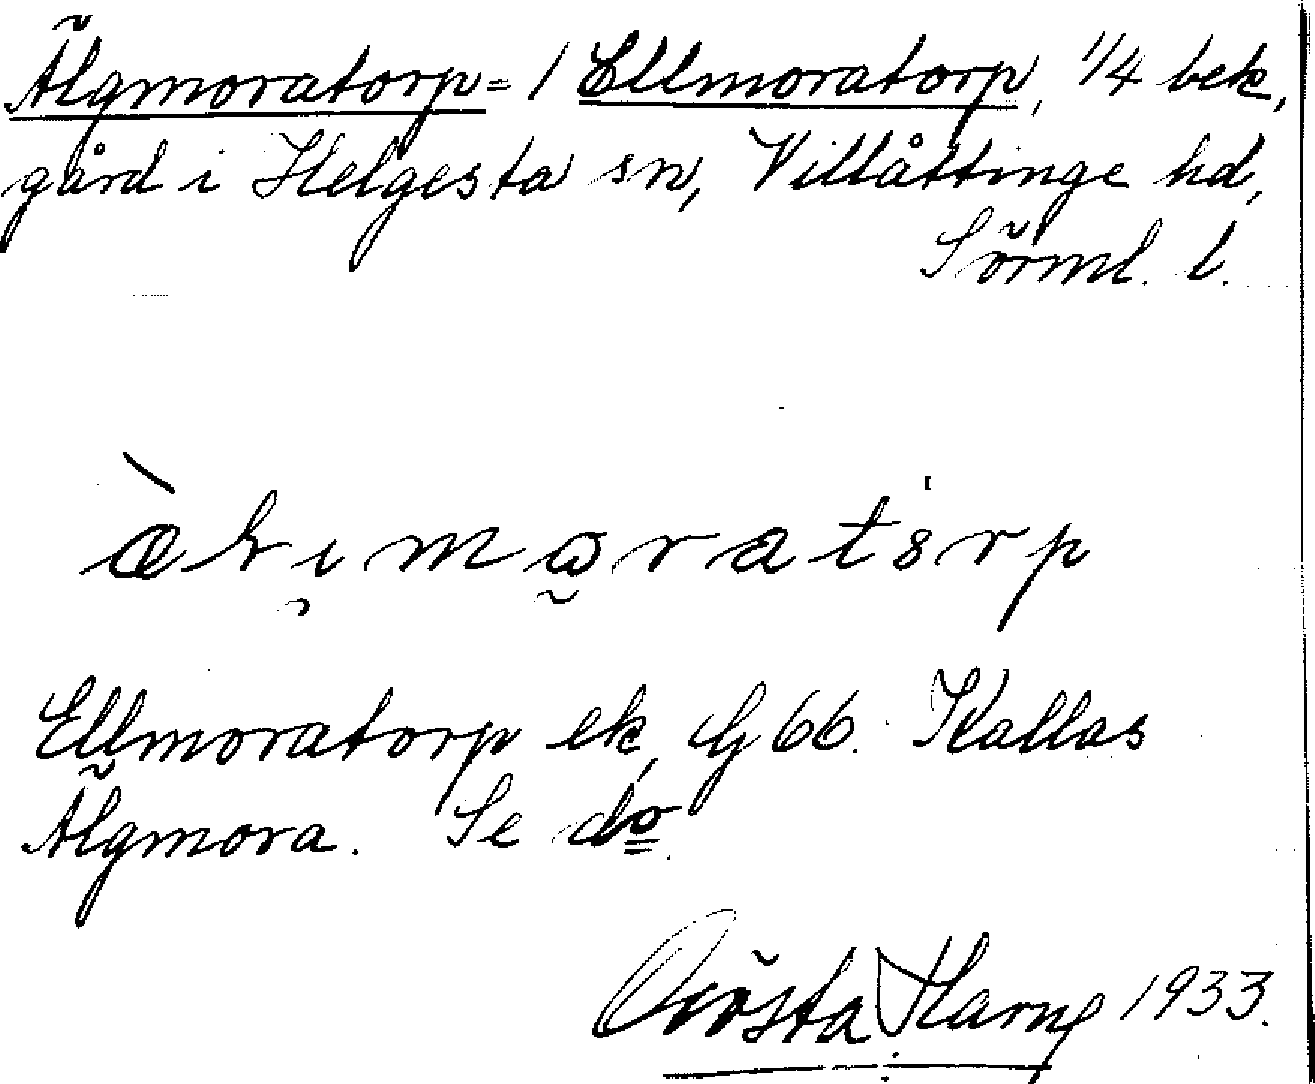 Älgmoratorp = / Ellmoratorp, 1/4 bek.
gård i Helgesta sn, Villåttinge hd,
Sörml. l.
Ellmoratorp ek, G 66. Kallas
Älgmora. Se do.
Gösta Harng 1933.